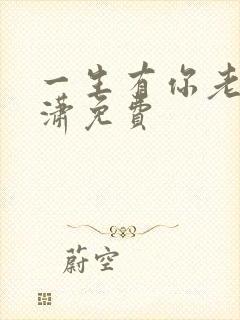 一生有你老
潇免费
蔚空